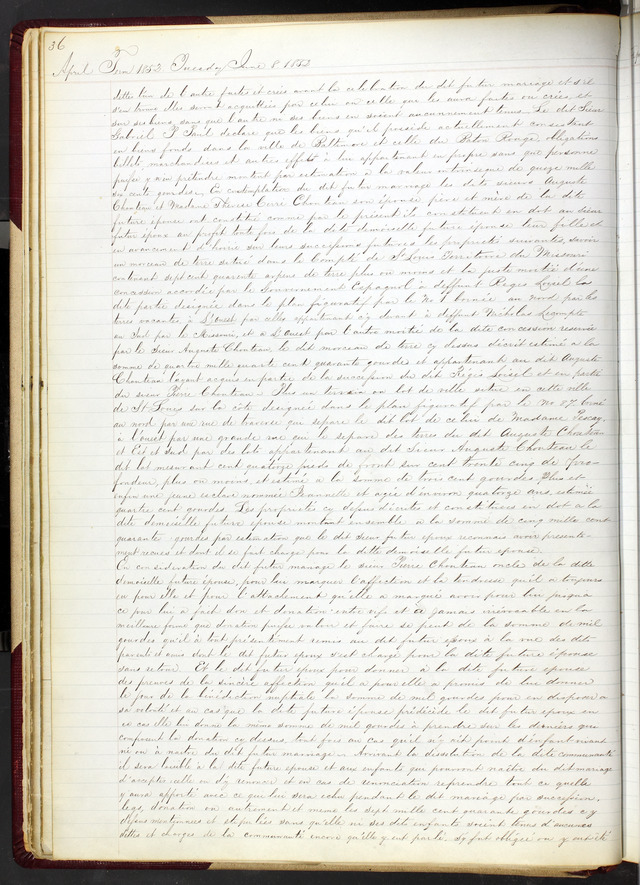 36
April Term 1852. Tuesday June 8. 1852
dette l'un de l'autre faites et créés avant la celebration du dit futur mariage et s'il
s'en trouve elles seront acquittées par celui ou celle que les aura faites ou créés et
sur ses biens sans que l'autre ni ses biens en soient aucunement tenus. Le dit Sieur
Gabriel P. declare que les biens qu'il possede actuellement consistent
en biens fonds dans la ville de Baltimore et celle du Baton Rouge, obligations
billets, marchandises et autres effets à lui appartenant en propre sans que personne
puisse y rien prétendre montent par estimation à la valeur intrinseque de quinze mille
six cente gourdes. En contemplation du dit futur mariage les dits sieurs Auguste
Chouteau et Madame Thérese Cerré Chouteau son épouse, père et mère de la dite
future épouse ont constitué comme par le présent ils constituent en dot au sieur
futur époux au profit toute fois de la dite demoiselle future épouse leur fille et
en avancement d'hoirie sur leurs successions futures les propriétés suivantes, savoir
un morceau de terre situé dans le Compté de St Louis Territoire du Missouri
contenant sept cent quarante arpens de terre plus ou moins et la juste moitié d'une
concession accordée par le Gouvernement Espagnol à deffunt Regis Loisel La
dit partie designée dans le plan figuratif par le No 1 bornée au nord par les
terres vacantes; L'ouest par celles appartenant cy devant à deffunt Nicholas Lecompte
au Sud par le Missouri, et a L'ouest par l'autre moitié de la dite concession reservée
par le Sieur Auguste Chouteau, le dit morceau de terre cy dessus décrit estimé a la
somme de quatre mille quatre cent quarante gourdes et appartenant au dit Auguste
Chouteau l'ayant acquis en partie de la succession du dit Régis Loisel et en partie
du sieur Pierre Chouteau. Plus un terrain ou lot de ville situé en cette ville
de St Louis sur la côte designée dans le plan figuratif par le No 87 borné
au nord par une rue de traverse qui separe le dit lot de celui de Madame
à l'ouest par une grande rue qui le separe des terres du dit Auguste Chouteau
et Est et Sud par des lots appartenant au dit Sieur Auguste Chouteau le
dit lot mesurant cent quatorze pieds de front sur cent trente cinq de
fondeur, plus ou moins et estimé a la somme de trois cent gourdes Plus et
enfin une jeune esclave nommée et agée d'environ quatorze ans estimée
quatre cent gourdes. Les propriétés cy dessus décrites et constituées en dot a la
dite demoiselle future épouse montent ensemble à la somme de cinq mille cent
quarante gourdes par estimation que le dit Sieur futur époux reconnais avoir presente-
ment recues et dont il se fait charge pour la ditte demoiselle futur épouse.
En consideration du dit futur mariage le sieur Pierre Chouteau oncle de la ditte
demoiselle future épouse, pour lui marquer l'affection et la tendresse qu'il a toujours
eu pour elle et pour l'attachement qu'elle a marqué avoir pour lui jusqua
ce jour lui a fait don et donation entre vifs et à jamais irrévocable en la
meilleure forme que donation puisse valoir et faire se peut de la somme de mil
gourdes qu'il a tout présentement remis au dit futur époux à la vue des dits
parent et amis dont le dit futur époux s'est chargé pour la ditte future épouse
sans retour. Et le dit futur époux pour donner à la dite future épouse
des preuves de la sincère affection qu'il a pour elle a promis de lui donner
le jour de la bénédiction nuptiale la somme de mil gourdes pour en disposer a
sa volonté et au cas que la dite future épouse prédécède le dit futur époux en
ce cas elle lui donne la même somme de mil gourdes à prendre sur les deniers que
comprend la donation cy dessus, tout fois au cas qu'il n'y ait point d'enfant vivant
né ou à naitre du dit futur mariage. Arrivant la dissolution de la dite communauté
il sera loisible à la dite future épouse et aux enfants qui pourront naitre du dit mariage
d'accepter icelle ou d'y renoncer et en cas de renonciation reprendre tout ce quelle
y aura apporté avec ce qui lui sera echu pendant le dit mariage par succession,
legs, donation ou autrement et meme les sept mille cent quarante gourdes cy
dessus mentionnées et stipulées sans qu'elle ni ses dits enfants soient tenus d'aucunes
dettes et charges de la communauté encore qu'elle y eut parlé, s'y fut obligée ou y eut été